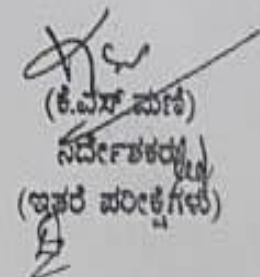 (ಕೆ.ಎಸ್ ಮಣಿ)
ನಿರ್ದೇಶಕರು
(ಇತರೆ ಪರೀಕ್ಷೆಗಳು)